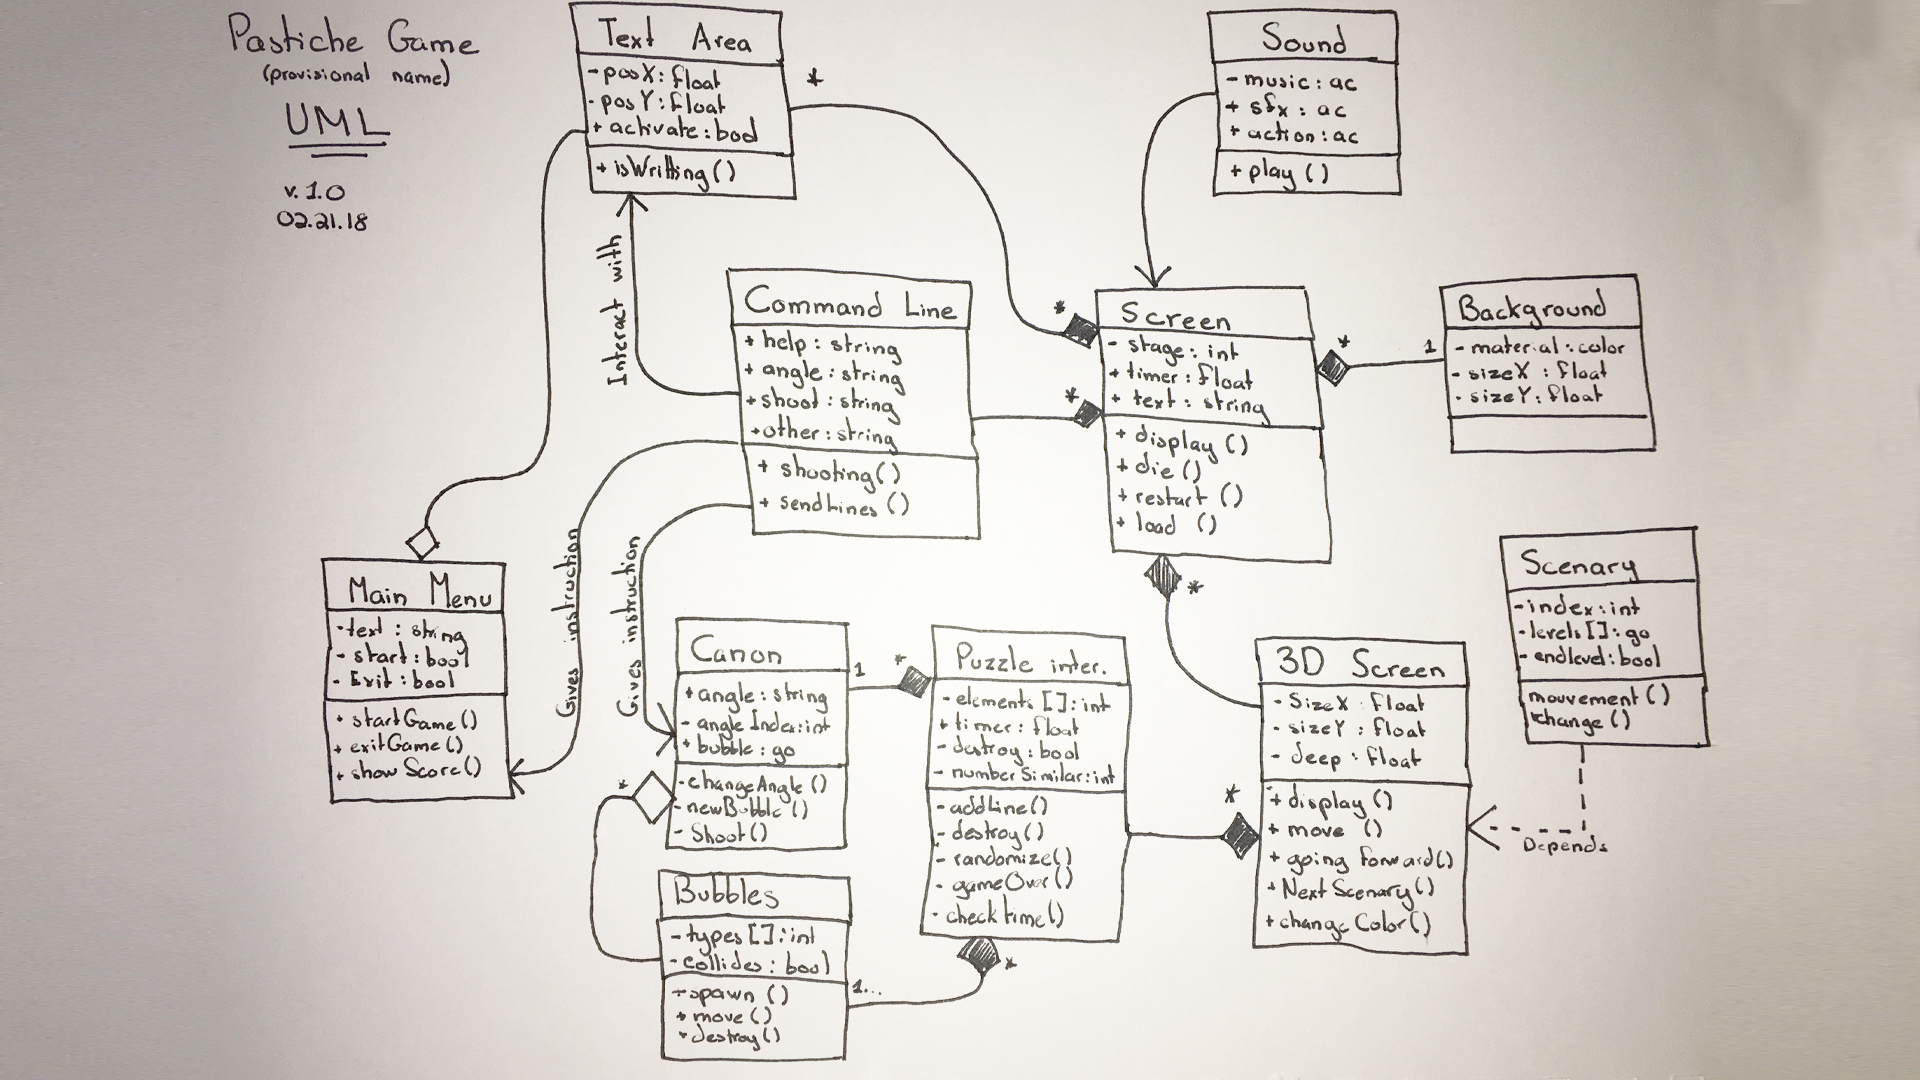 Pastiche Game
(provisional name)
UML
v. 1.0
02.21.18
Text Area
- posX: float
- posY: float
+ activate: bool
+ isWritting()
*
Sound
- music: ac
+ sfx: ac
+ action: ac
+ play()
Interact with
Command Line
+ help: string
+ angle: string
+ shoot: string
+ other: string
+ shooting()
+ sendLines()
*
*
Screen
- stage: int
+ timer: float
+ text: string
+ display()
+ die()
+ restart()
+ load()
*
1
Background
- material: color
- sizeX: float
- sizeY: float
*
Main Menu
- text: string
- start: bool
- Exit: bool
+ startGame()
+ exitGame()
+ showScore()
Gives instruction
Gives instruction
Canon
+ angle: string
- angleIndex: int
+ bubble: go
- changeAngle()
- newBubble()
- Shoot()
1
*
*
Puzzle inter.
- elements []: int
+ timer: float
- destroy: bool
- numberSimilar: int
- addLine()
- destroy()
- randomize()
- gameOver()
- checktime()
*
*
3D Screen
- SizeX: float
- sizeY: float
- deep: float
+ display()
+ move()
+ going forward()
+ NextScenary()
+ changeColor()
Scenary
- index: int
- levels[]: go
- endlevel: bool
mouvement()
change()
Depends
Bubbles
- types[]: int
- collides: bool
+ spawn()
+ move()
+ destroy()
1...